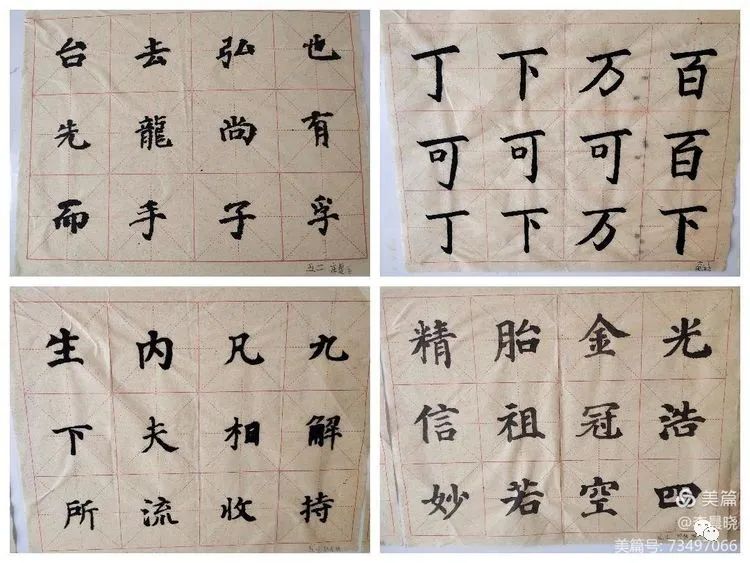 台去弘也
先龍尚有
而手子孚
丁下万百
可可可百
丁下万下
生内凡九
下夫相解
所流收持
精胎金光
信祖冠浩
妙若空四
美篇
美篇号: 73497066